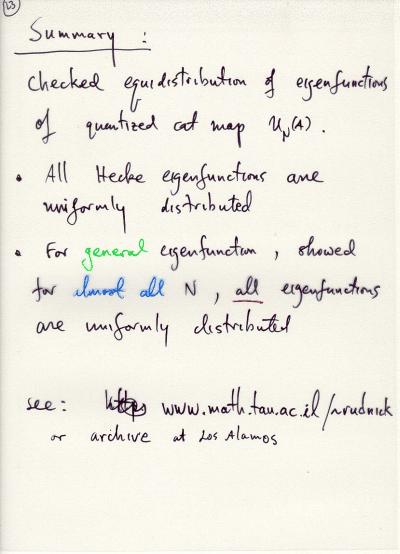 23
Summary :
Checked equidistribution of eigenfunctions
of quantized cat map U_N(A).
• All Hecke eigenfunctions are
uniformly distributed
• For general eigenfunction, showed
for almost all N, all eigenfunctions
are uniformly distributed
see: www.math.tau.ac.il/~rudnick
or archive at Los Alamos